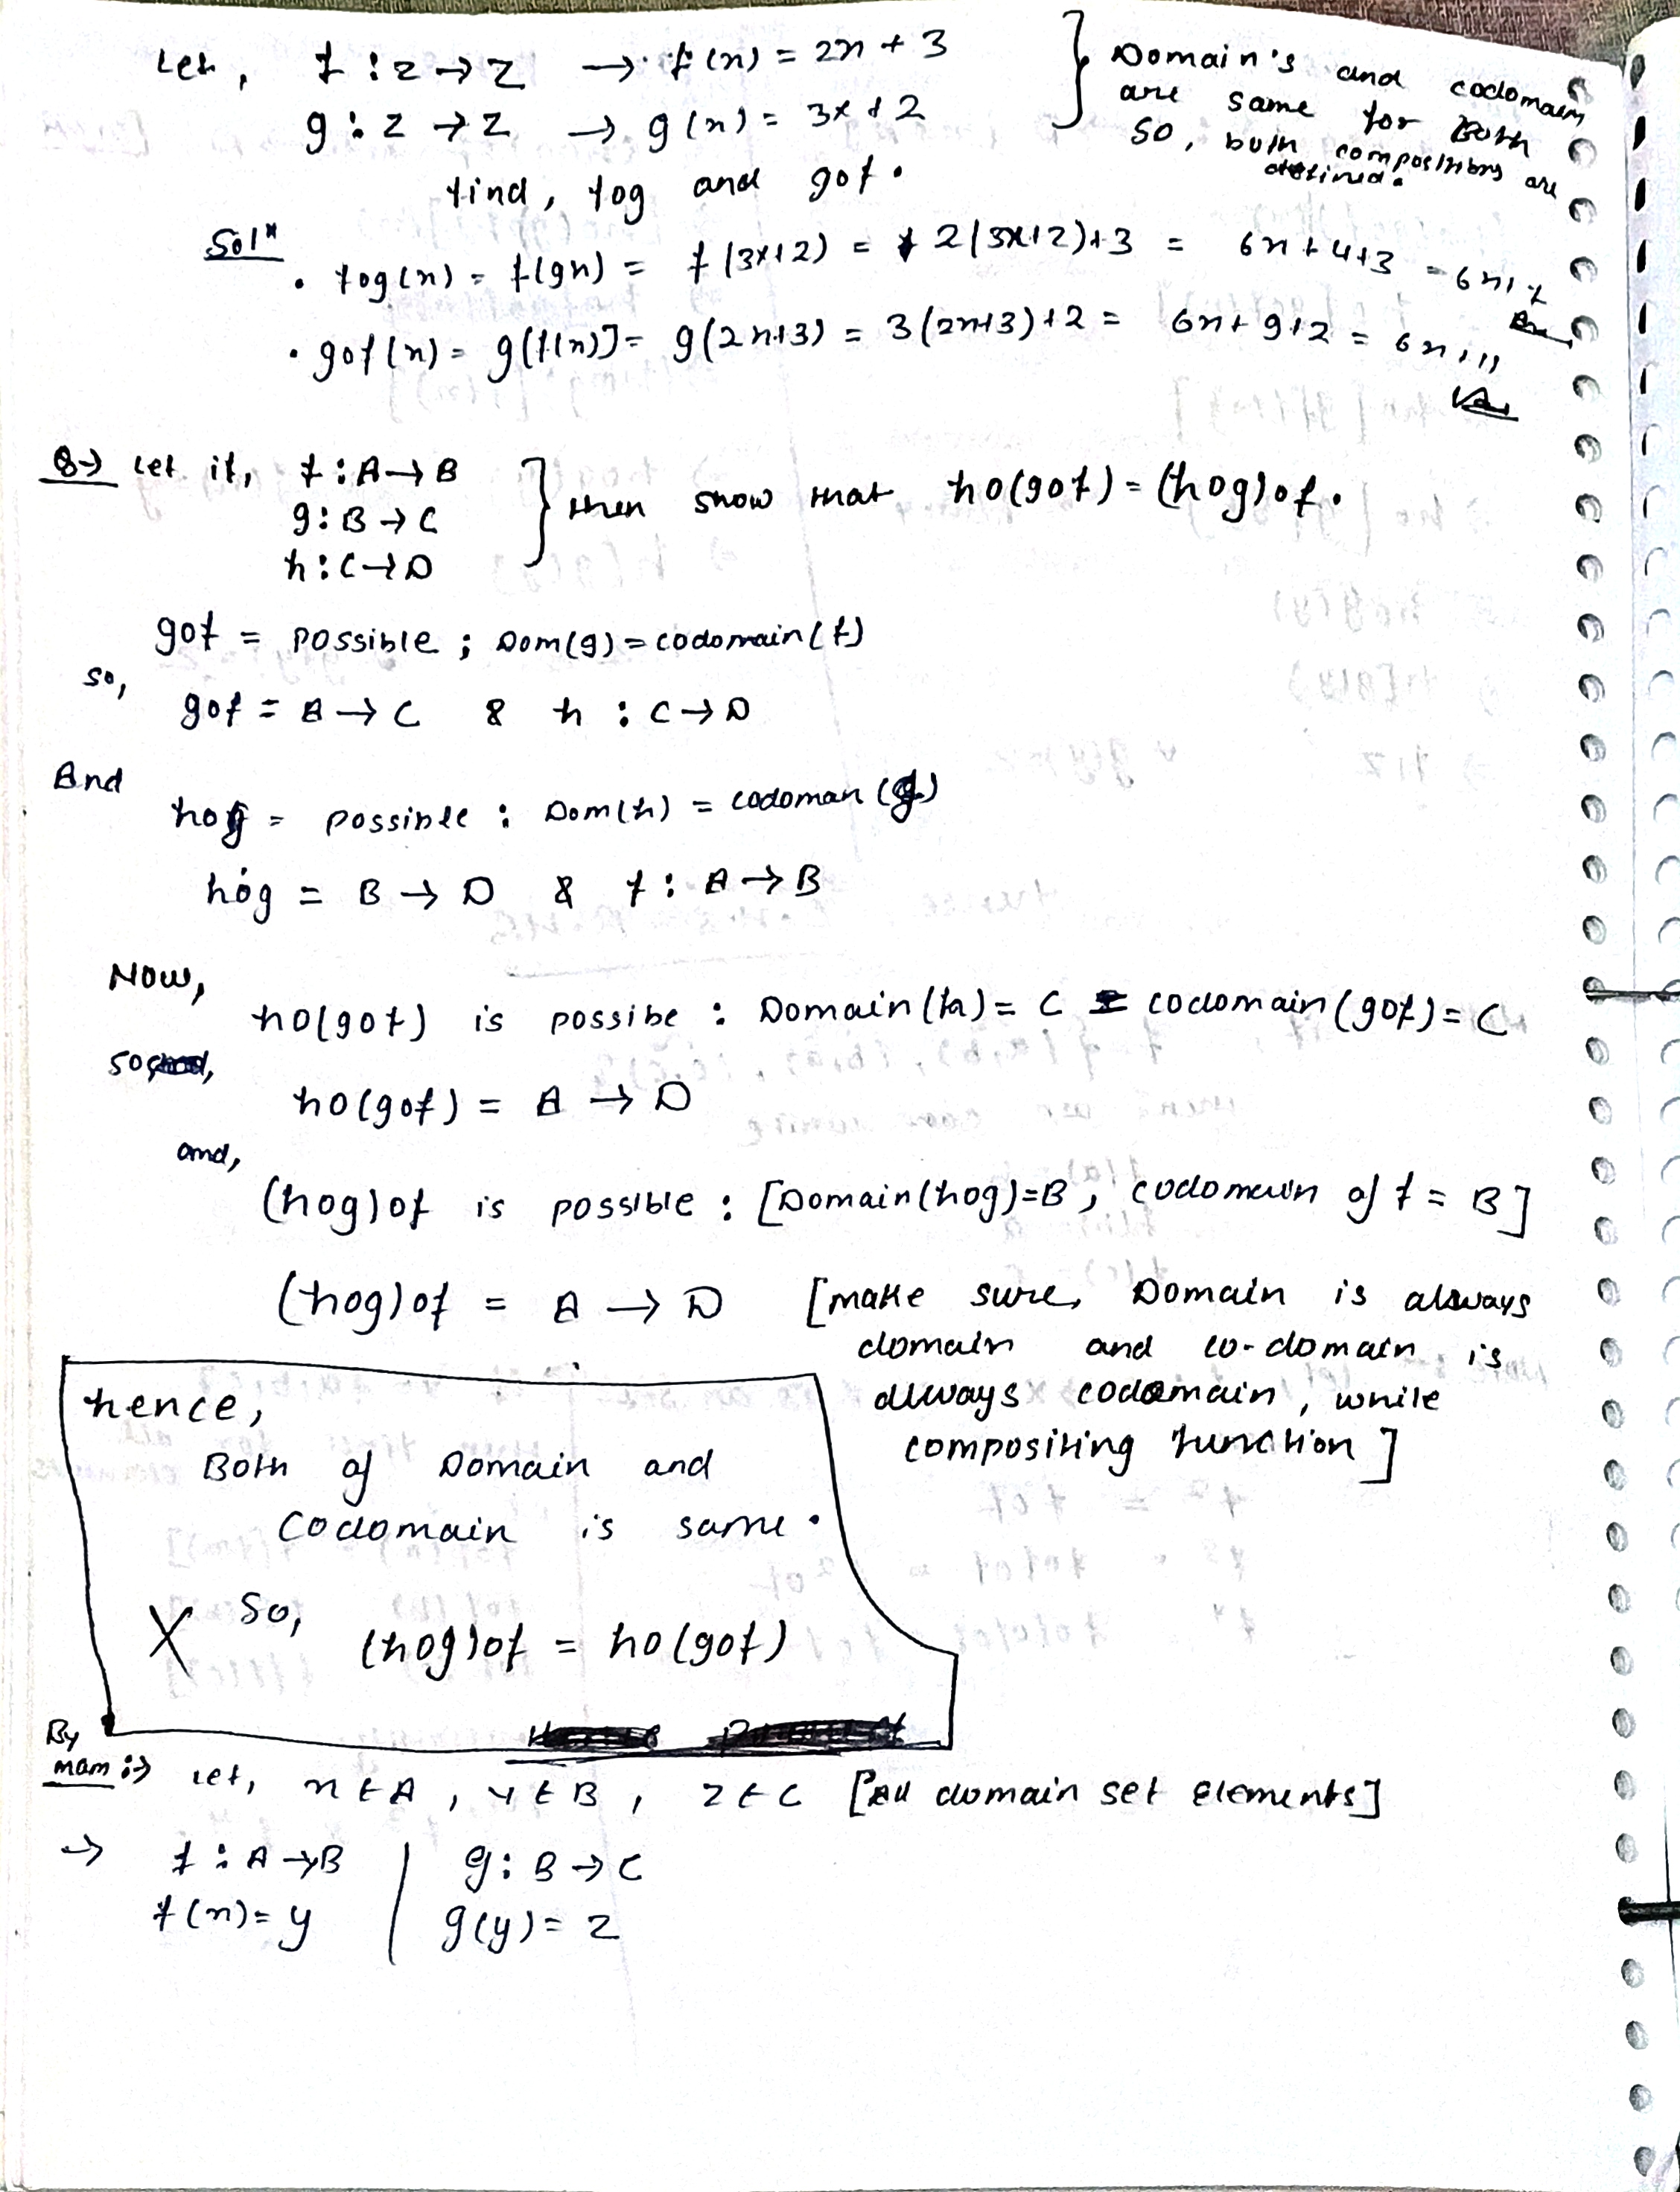 Let, f : Z → Z → f(n) = 2n + 3
g : Z → Z → g(n) = 3x + 2
} Domain's and codomain
are same for Both
so, both compositions are
defined.
find, fog and gof.
Solⁿ
• fog(n) = f(gn) = f(3x+2) = 2(3x+2)+3 = 6n+4+3 = 6n+7
• gof(n) = g[f(n)] = g(2n+3) = 3(2n+3)+2 = 6n+9+2 = 6n+11
Q→ Let if, f : A → B
g : B → C
h : C → D
} then show that ho(gof) = (hog)of.
gof = possible ; Dom(g) = codomain(f)
so,
gof = A → C & h : C → D
And
hog = possible : Dom(h) = codoman (g)
hog = B → D & f : A → B
Now,
ho(gof) is possibe : Domain(h) = C = codomain(gof) = C
so,
ho(gof) = A → D
and,
(hog)of is possible : [Domain(hog)=B, codomain of f = B]
(hog)of = A → D [make sure, Domain is always
domain and co-domain is
always codomain, while
compositing function]
hence,
Both of Domain and
Codomain is same.
X so, (hog)of = ho(gof)
By
mam :→ let, n ∈ A, y ∈ B, z ∈ C [All domain set elements]
→ f : A → B | g : B → C
f(n) = y | g(y) = z